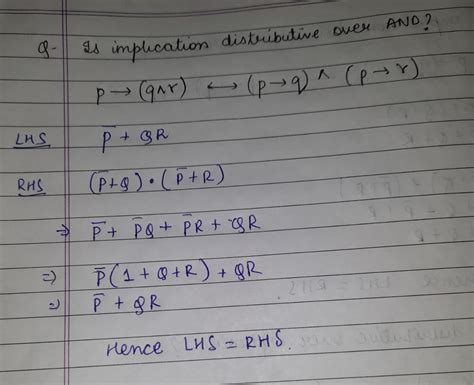 Q- Is implication distributive over AND?
p → (q∧r) ⟷ (p → q) ∧ (p → r)
LHS p̅ + QR
RHS (p̅+Q) • (p̅+R)
⇒ p̅ + p̅Q + p̅R + QR
⇒ p̅(1 + Q + R) + QR
⇒ p̅ + QR
Hence LHS = RHS.